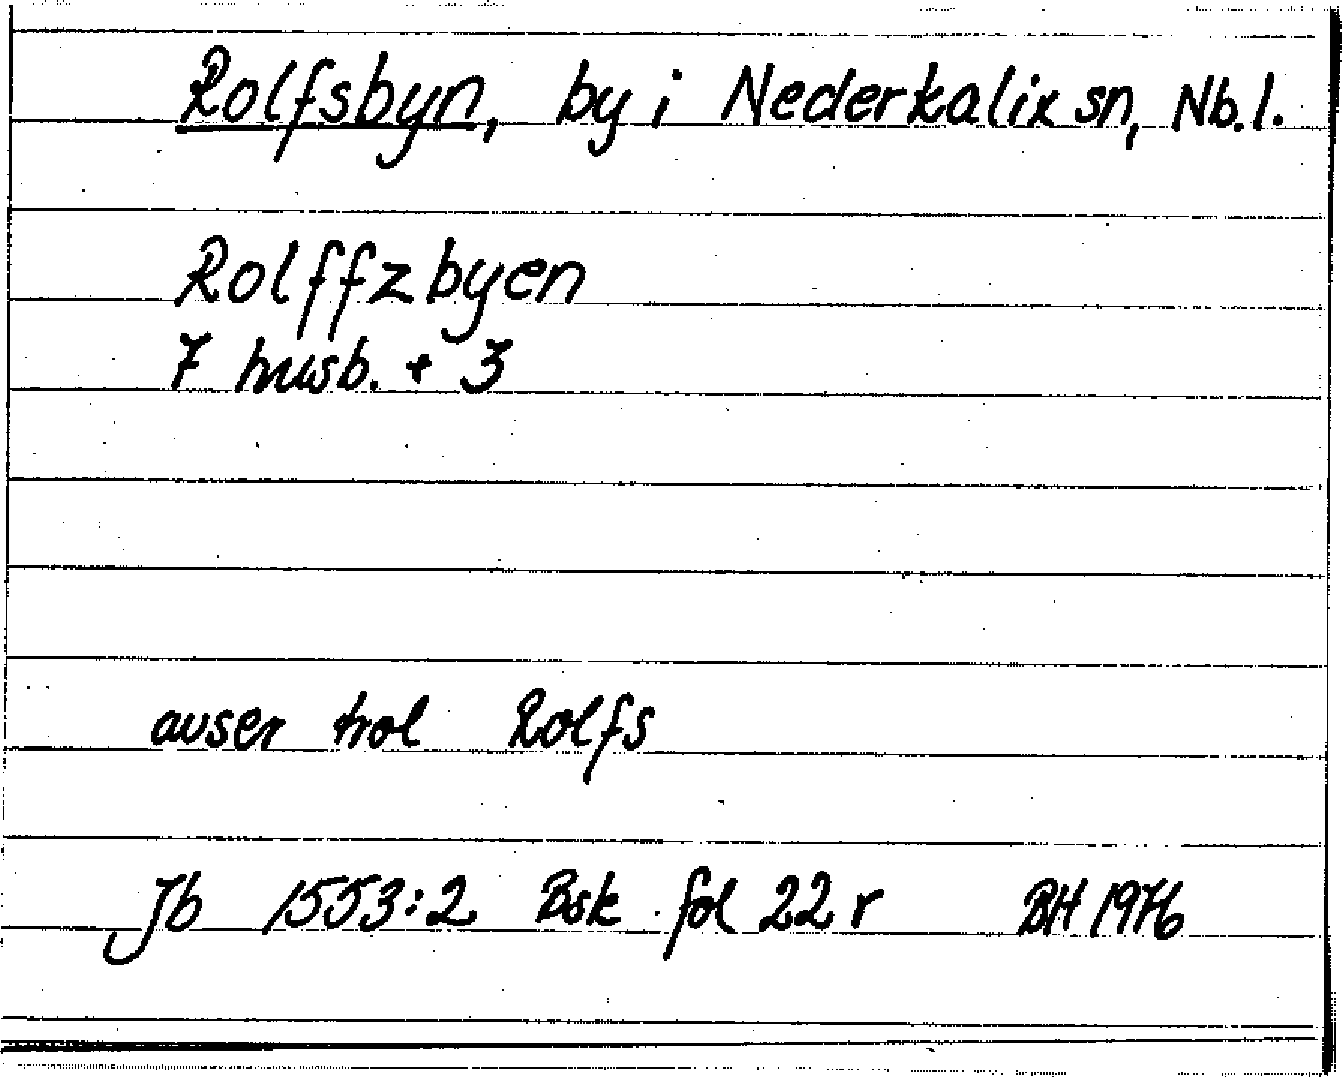 Rolfsbyn, by i Nederkalix sn, Nb.l.
Rolffzbyen
7 husb. + 3
avser trol Rolfs
Jb 1553:2 Bsk fol 22 r BH 1976